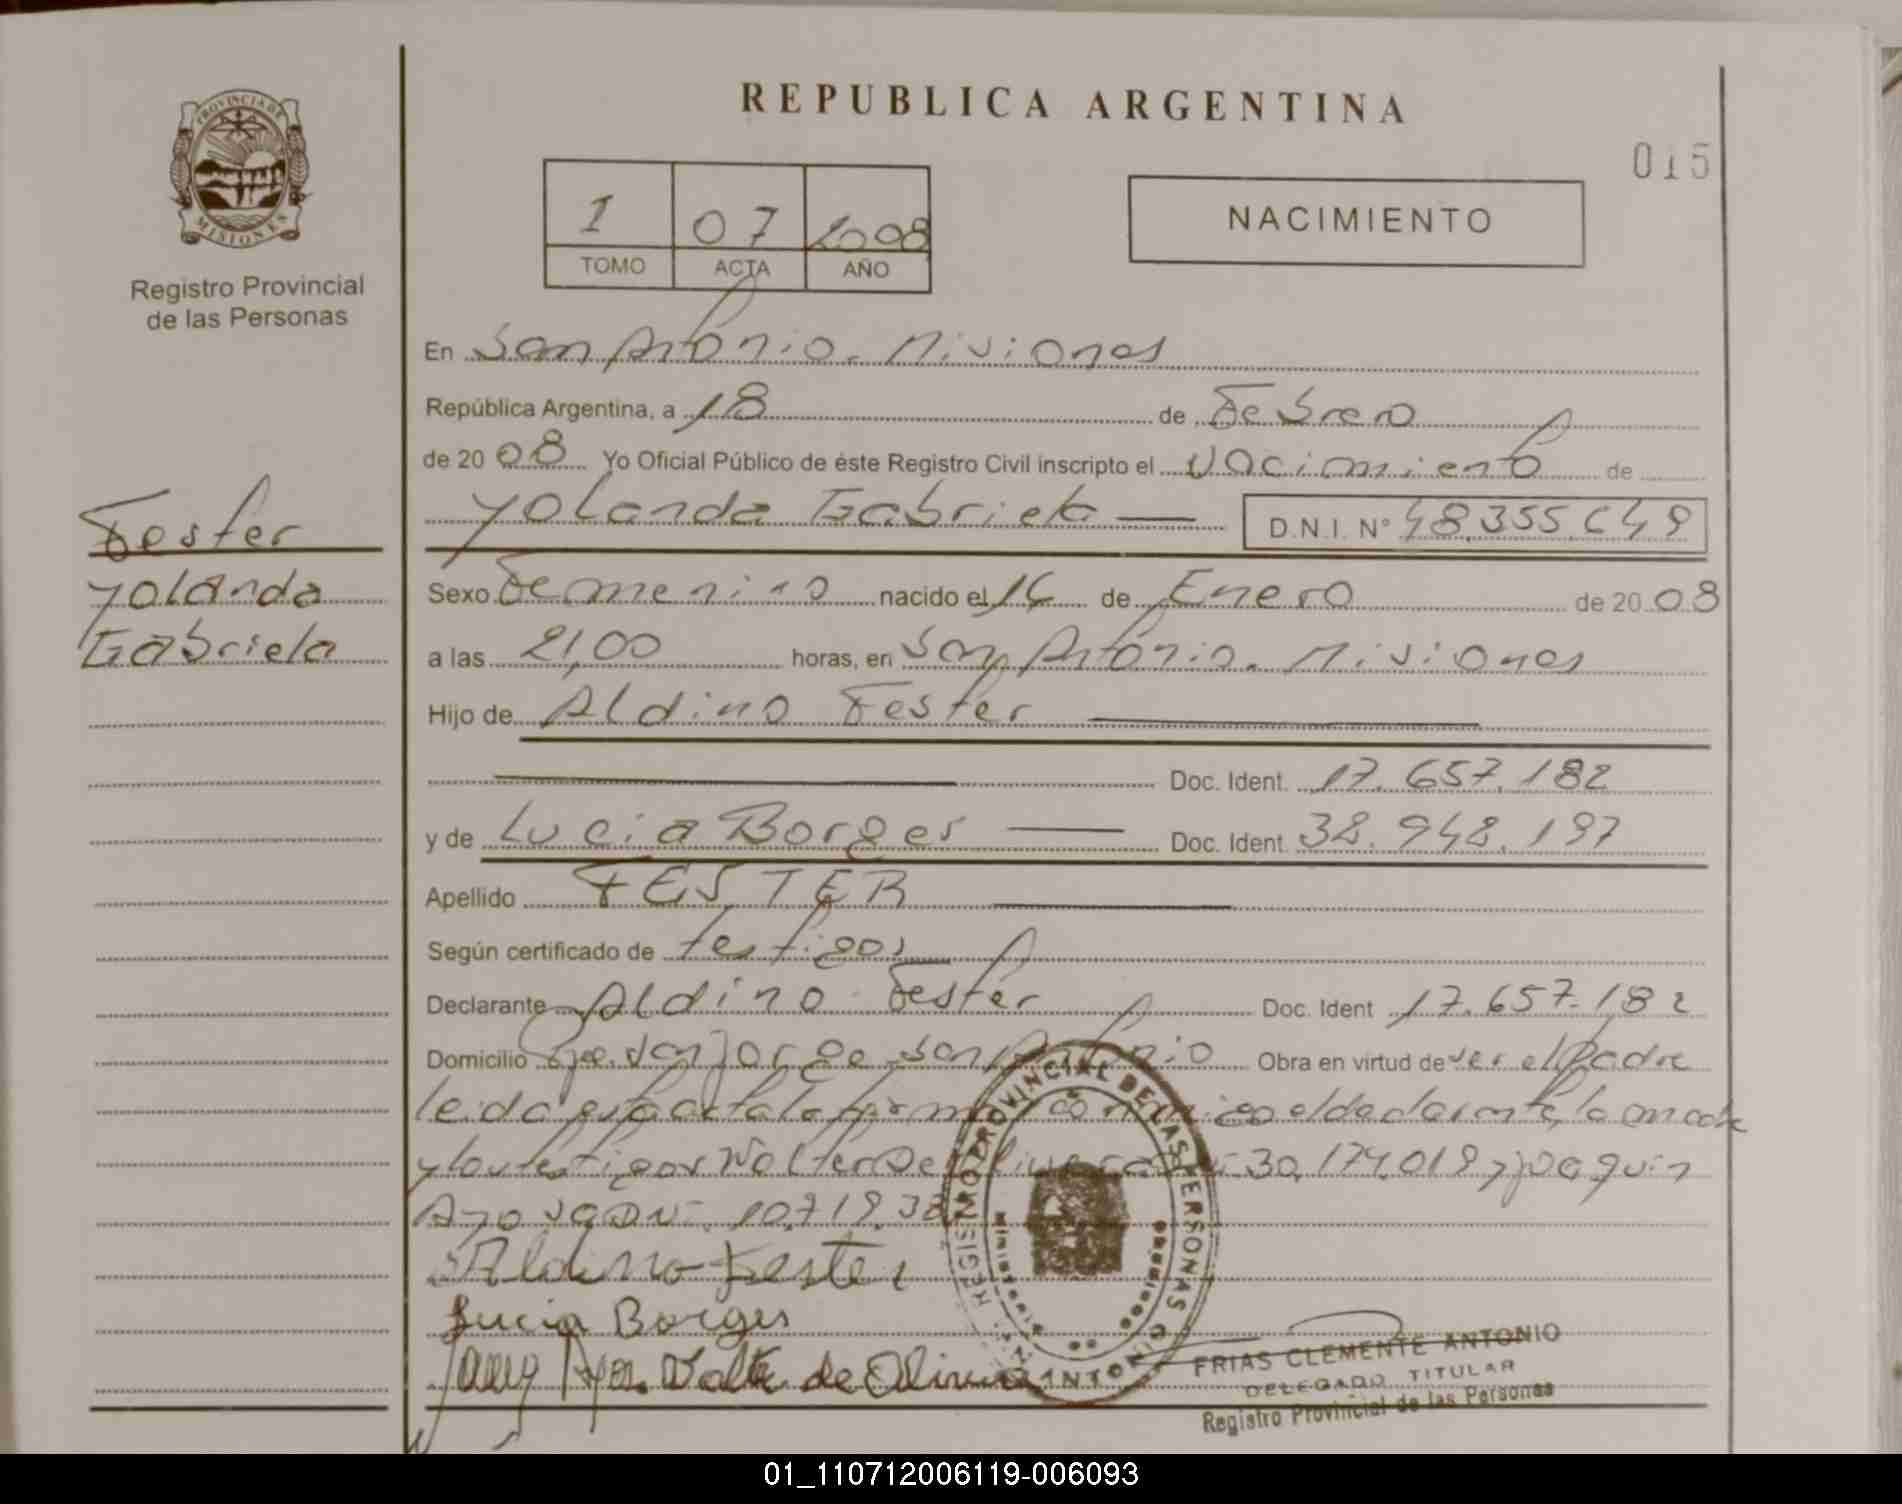 REPUBLICA ARGENTINA
015
PROVINCIA DE
MISIONES
Registro Provincial
de las Personas
I 07 2008
TOMO ACTA AÑO
NACIMIENTO
En San Antonio. Misiones
República Argentina, a 18 de Febrero
de 2008 Yo Oficial Público de éste Registro Civil inscripto el Nacimiento de
Yolanda Gabriela D.N.I. Nº 48.355.649
Fester
Yolanda
Gabriela
Sexo Femenino nacido el 16 de Enero de 2008
a las 21,00 horas, en San Antonio. Misiones
Hijo de Aldino Fester
Doc. Ident. 17.657.182
y de Lucia Borges Doc. Ident. 38.948.197
Apellido FESTER
Según certificado de testigos
Declarante Aldino Fester Doc. Ident 17.657.182
Domicilio San Jorge San Antonio Obra en virtud de ser el Padre
leida esta acta la firma conmigo el declarante, la madre
y los testigos Walter De 30.174.019 y Joaquin
10.719.38
Aldino Fester
Lucia Borges
Walter de Olivera
REGISTRO PROVINCIAL DE LAS PERSONAS
FRIAS CLEMENTE ANTONIO
DELEGADO TITULAR
Registro Provincial de las Personas
01_110712006119-006093